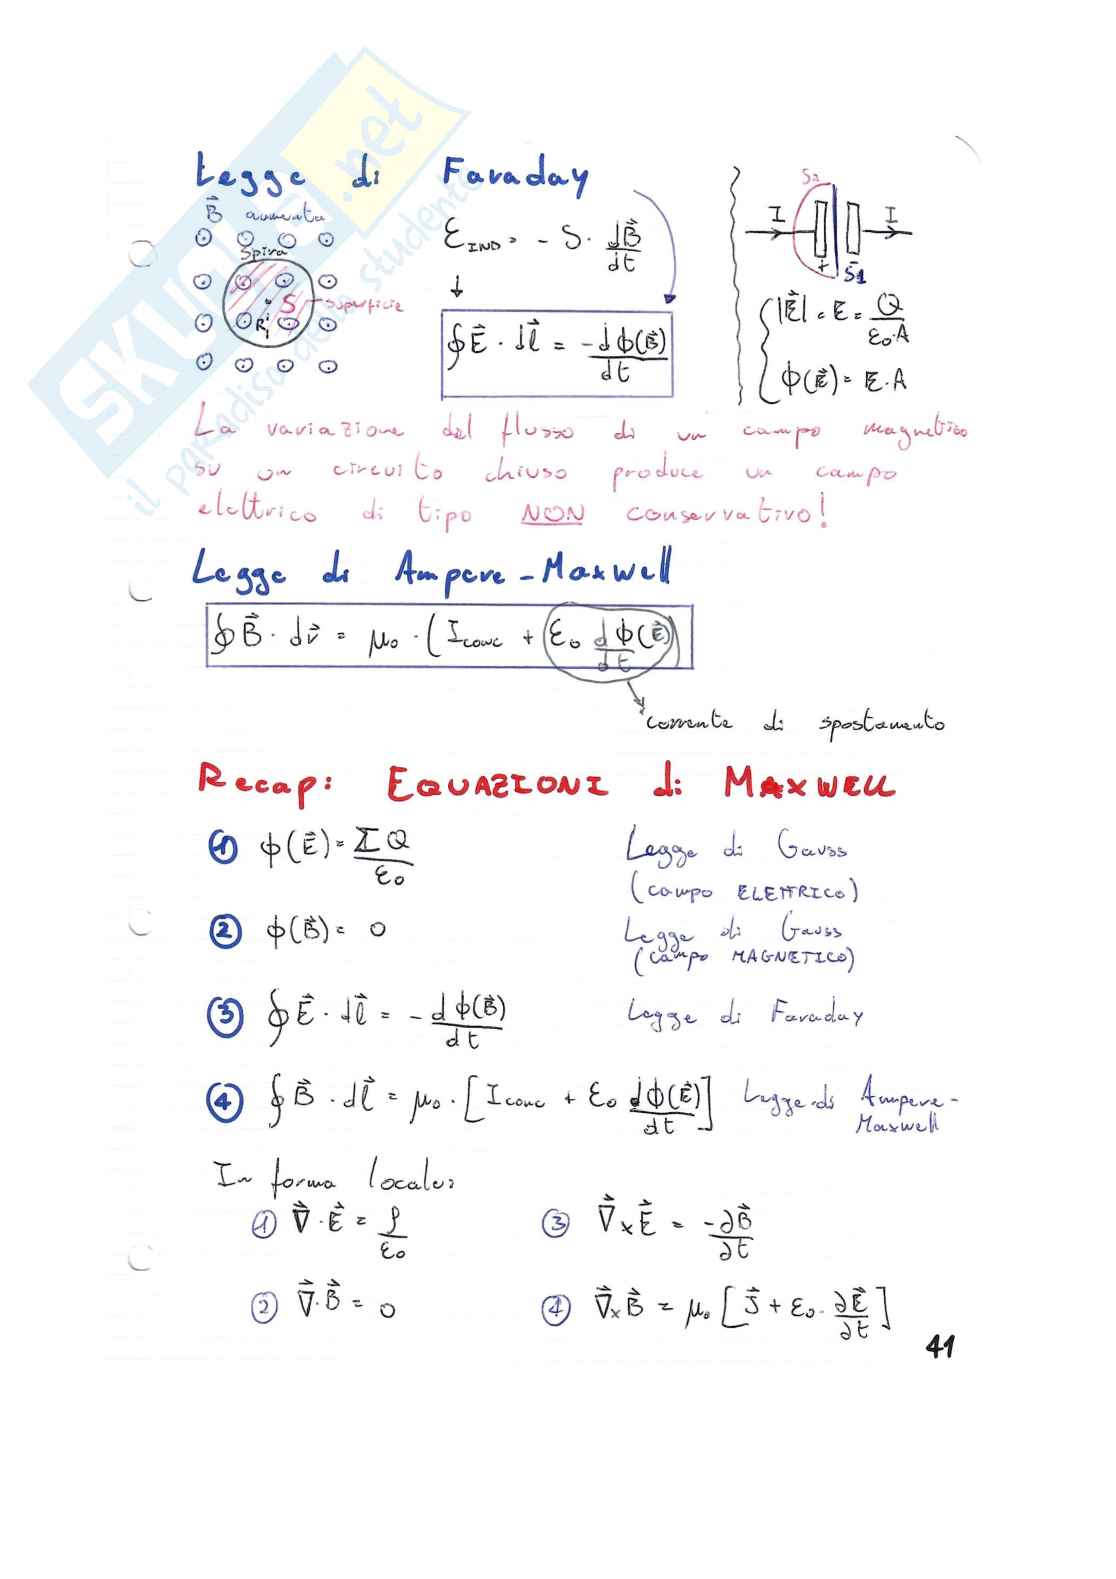 SKUOLA.net
il paradiso dello studente
Legge di Faraday
B⃗ aumenta
Spira
S superficie
Ri
ℰ_IND = - S · dB⃗/dt
↓
∮ E⃗ · dl⃗ = -dΦ(B⃗)/dt
S2
I I
+ S1
|E⃗| = E = Q/ε₀·A
Φ(E⃗) = E·A
La variazione del flusso di un campo magnetico
su un circuito chiuso produce un campo
elettrico di tipo NON conservativo!
Legge di Ampere-Maxwell
∮ B⃗ · dr⃗ = μ₀ · (Iconc + ε₀ dΦ(E⃗)/dt)
corrente di spostamento
Recap: EQUAZIONI di MAXWELL
1 Φ(E⃗) = ΣQ/ε₀ Legge di Gauss
(campo ELETTRICO)
2 Φ(B⃗) = 0 Legge di Gauss
(campo MAGNETICO)
3 ∮ E⃗ · dl⃗ = - dΦ(B⃗)/dt Legge di Faraday
4 ∮ B⃗ · dl⃗ = μ₀ · [Iconc + ε₀ dΦ(E⃗)/dt] Legge di Ampere-
Maxwell
In forma locale:
1 ∇⃗ · E⃗ = ρ/ε₀ 3 ∇⃗ x E⃗ = -∂B⃗/∂t
2 ∇⃗ · B⃗ = 0 4 ∇⃗ x B⃗ = μ₀ [J⃗ + ε₀ · ∂E⃗/∂t]
41